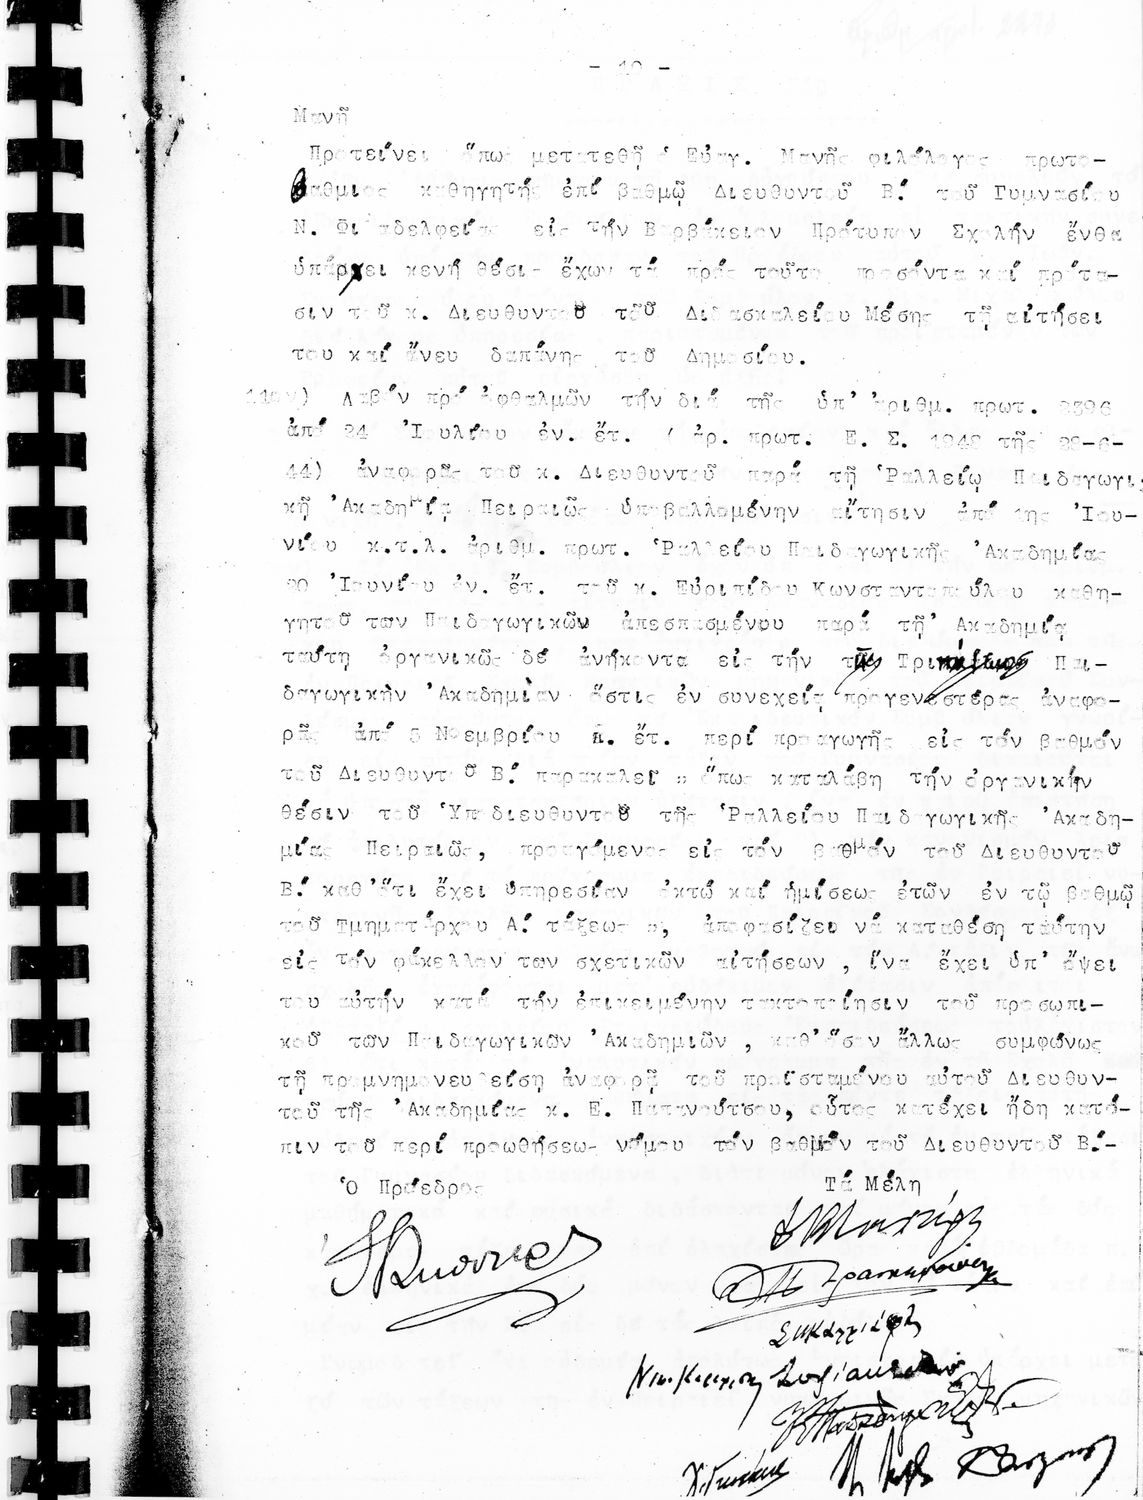 - 10 -
Μανῆ
Προτείνει ὅπως μετατεθῆ ὁ Εὐαγ. Μανῆς φιλόλογος πρωτο-
βαθμιος καθηγητής ἐπί βαθμῷ Διευθυντοῦ Β.' τοῦ Γυμνασίου
Ν. Φιλαδελφείας εἰς τήν Βαρβάκειον Πρότυπον Σχολήν ἔνθα
ὑπάρχει κενή θέσις ἔχων τά πρός τοῦτο προσόντα καί πρότα-
σιν τοῦ κ. Διευθυντοῦ τοῦ Διδασκαλείου Μέσης τῇ αἰτήσει
του καί ἄνευ δαπάνης τοῦ Δημοσίου.
Λαβόν πρό ὀφθαλμῶν τήν διά τῆς ὑπ' ἀριθμ. πρωτ. 2396
ἀπό 24 'Ιουλίου ἐν. ἔτ. ( ἀρ. πρωτ. Ε. Σ. 1948 τῆς 28-6-
44) ἀναφορᾶς τοῦ κ. Διευθυντοῦ παρά τῇ 'Ραλλείῳ Παιδαγωγι-
κῇ 'Ακαδημίᾳ Πειραιῶς ὑποβαλλομένην αἴτησιν ἀπό 1ης 'Ιου-
νίου κ.τ.λ. ἀριθμ. πρωτ. 'Ραλλείου Παιδαγωγικῆς 'Ακαδημίας
20 'Ιουνίου ἐν. ἔτ. τοῦ κ. Εὐριπίδου Κωνσταντοπούλου καθη-
γητοῦ των Παιδαγωγικῶν ἀπεσπασμένου παρά τῇ 'Ακαδημίᾳ
ταύτη ὀργανικῶς δέ ἀνήκοντα εἰς τήν Παι-
δαγωγικὴν 'Ακαδημίαν ὅστις ἐν συνεχείᾳ προγενεστέρας ἀναφο-
ρᾶς ἀπό 5 Νοεμβρίου π. ἔτ. περί προαγωγῆς εἰς τόν βαθμόν
τοῦ Διευθυντοῦ Β.' παρακαλεῖ " ὅπως καταλάβη τήν ὀργανικήν
θέσιν τοῦ 'Υποδιευθυντοῦ τῆς 'Ραλλείου Παιδαγωγικῆς 'Ακαδη-
μίας Πειραιῶς, προαγόμενος εἰς τόν βαθμόν τοῦ Διευθυντοῦ
Β.' καθ'ὅτι ἔχει ὑπηρεσίαν ὀκτώ καί ἡμίσεως ἐτῶν ἐν τῷ βαθμῷ
τοῦ Τμηματάρχου Α.' τάξεως ", ἀποφασίζει νά καταθέση ταύτην
εἰς τόν φάκελλον των σχετικῶν αἰτήσεων , ἵνα ἔχει ὑπ' ὄψει
του αὐτήν κατά τήν ἐπικειμένην τακτοποίησιν τοῦ προσωπι-
κοῦ των Παιδαγωγικῶν 'Ακαδημιῶν , καθ'ὅσον ἄλλως συμφώνως
τῇ προμνημονευθείση ἀναφορᾷ τοῦ προϊσταμένου αὐτοῦ Διευθυν-
τοῦ τῆς 'Ακαδημίας κ. Ε. Παπανούτσου, οὗτος κατέχει ἤδη κατό-
πιν τοῦ περί προωθήσεως νόμου τόν βαθμόν τοῦ Διευθυντοῦ Β.'-
'Ο Πρόεδρος Τά Μέλη